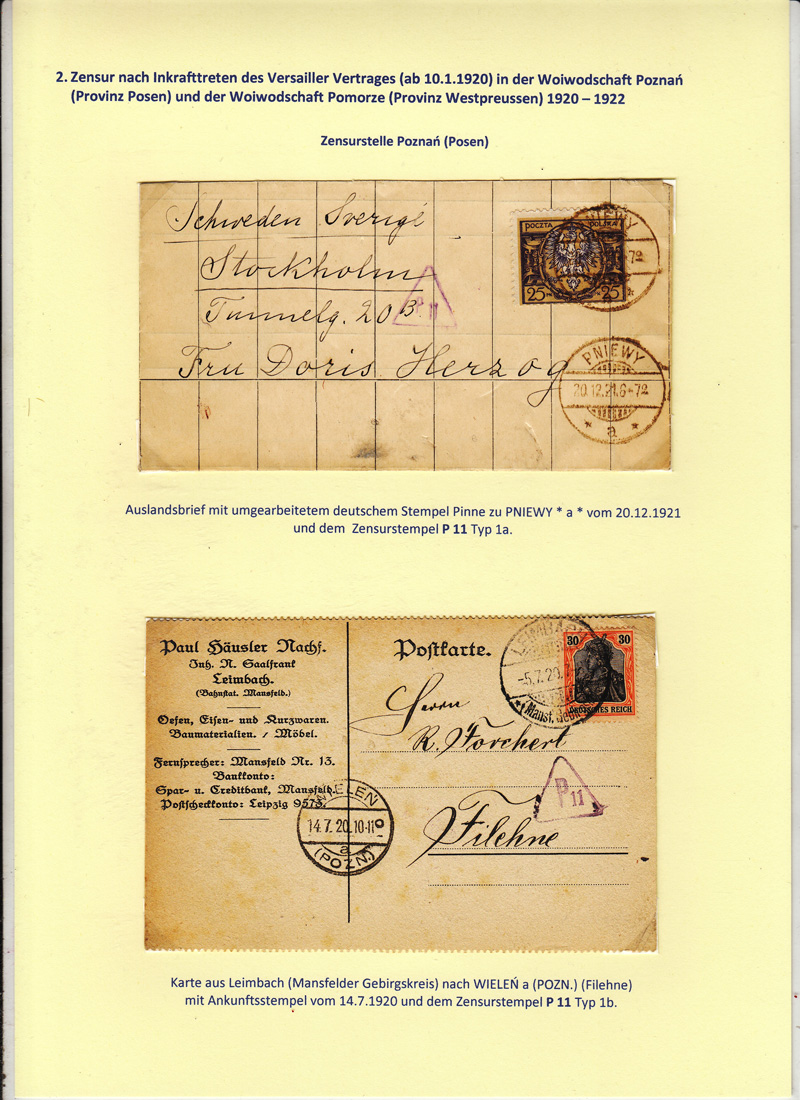 2. Zensur nach Inkrafttreten des Versailler Vertrages (ab 10.1.1920) in der Woiwodschaft Poznań
(Provinz Posen) und der Woiwodschaft Pomorze (Provinz Westpreussen) 1920 – 1922
Zensurstelle Poznań (Posen)
Schweden Sverige
Stockholm
Tunnelg. 20 B
Fru Doris Herzog
P 11
POCZTA POLSKA
25 25
PNIEWY
PNIEWY
20.12.21.6-7
* a *
Auslandsbrief mit umgearbeitetem deutschem Stempel Pinne zu PNIEWY * a * vom 20.12.1921
und dem Zensurstempel P 11 Typ 1a.
Paul Häusler Nachf.
Inh. R. Saalfrank
Leimbach.
(Bahnstat. Mansfeld.)
Oefen, Eisen- und Kurzwaren.
Baumaterialien. / Möbel.
Fernsprecher: Mansfeld Nr. 13.
Bankkonto:
Spar- u. Creditbank, Mansfeld.
Postscheckkonto: Leipzig 9573.
Postkarte.
LEIMBACH
-5.7.20.
30 30
DEUTSCHES REICH
Herrn
R. Forchert
Filehne
P 11
WIELEŃ
14.7.20.10-11
a
(POZN.)
Karte aus Leimbach (Mansfelder Gebirgskreis) nach WIELEŃ a (POZN.) (Filehne)
mit Ankunftsstempel vom 14.7.1920 und dem Zensurstempel P 11 Typ 1b.